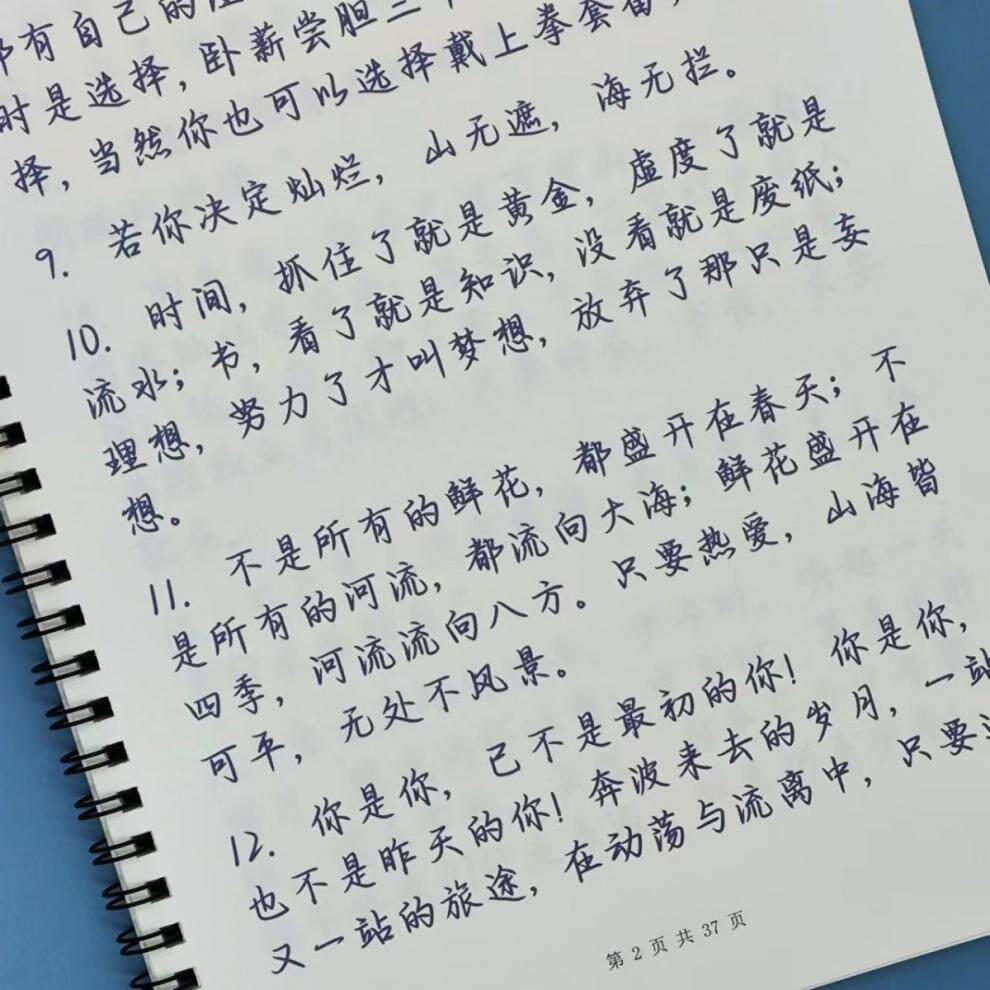 都有自己的
时是选择，卧薪尝胆三
择，当然你也可以选择戴上拳套奋
9. 若你决定灿烂，山无遮，海无拦。
10. 时间，抓住了就是黄金，虚度了就是
流水；书，看了就是知识，没看就是废纸；
理想，努力了才叫梦想，放弃了那只是妄
想。
11. 不是所有的鲜花，都盛开在春天；不
是所有的河流，都流向大海；鲜花盛开在
四季，河流流向八方。只要热爱，山海皆
可平，无处不风景。
12. 你是你，已不是最初的你！你是你，
也不是昨天的你！奔波来去的岁月，一站
又一站的旅途，在动荡与流离中，只要
第 2 页 共 37 页